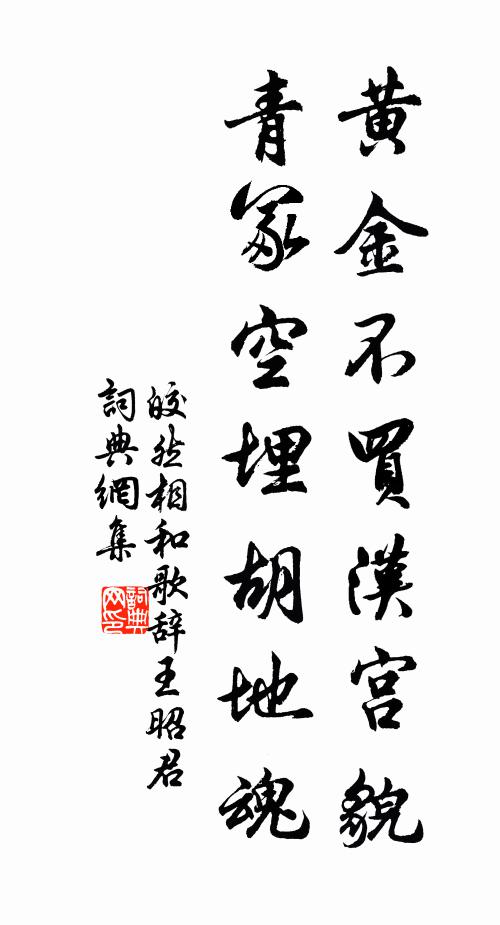 黄金不買漢宮貌
青冢空埋胡地魂
皎然相和歌辞王昭君
詞典網集
詞典网印